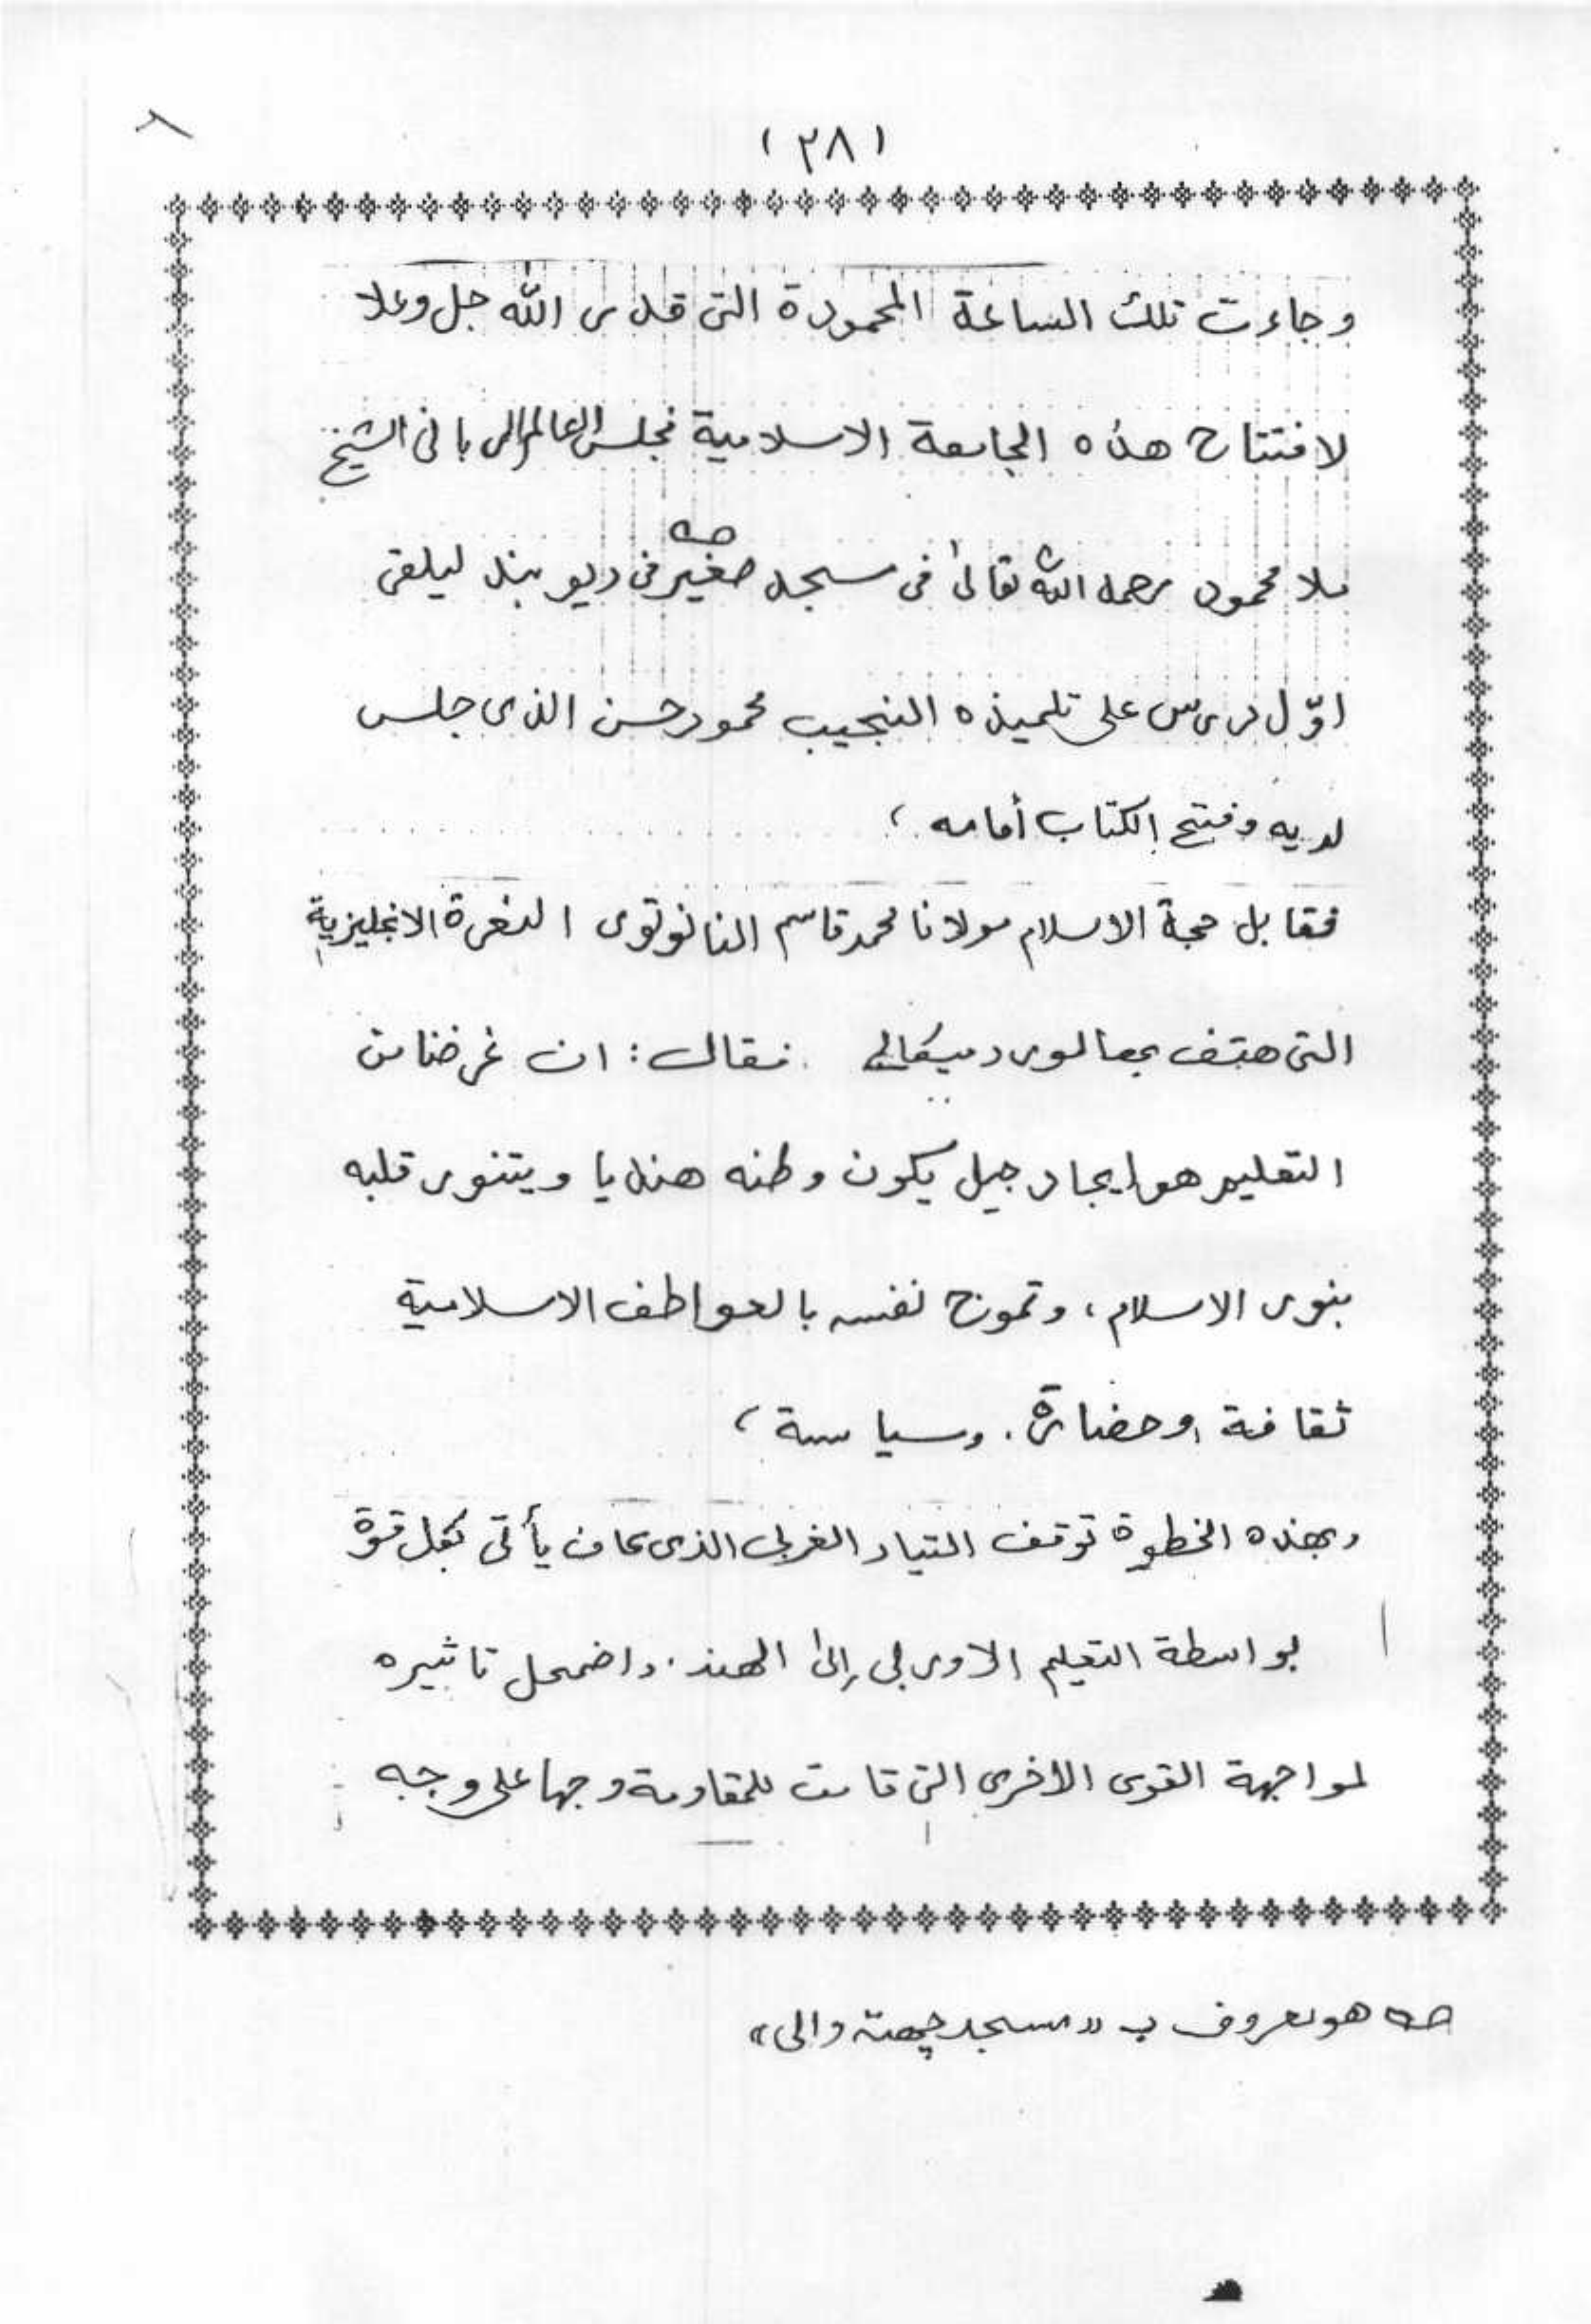 (٢٨)
وجاءت تلك الساعة المحمودة التى قدر الله جل وعلا
لافتتاح هذه الجامعة الاسلامية فجلس العالم الربانى الشيخ
ملا محمود رحمه الله تعالىٰ فى مسجد صغير فى ديوبند ليلقى
اوّل درس على تلميذه النجيب محمود حسن الذى جلس
لديه وفتح الكتاب أمامه ،
فقابل حجة الاسلام مولانا محمد قاسم النانوتوى النعرة الانجليزية
التى هتف بها لورد ميكالي فقال : ان غرضنا من
التعليم هو ايجاد جيل يكون وطنه هنديا ويتنور قلبه
بنور الاسلام ، وتموج نفسه بالعواطف الاسلامية
ثقافة وحضارة . وسياسة ،
وبهذه الخطوة توقف التيار الغربى الذى كان يأتى بكل قوة
بواسطة التعليم الاوربى إلىٰ الهند . واضمحل تاثيره
لمواجهة القوى الأخرى التى قامت للمقاومة وجها على وجه
هو معروف ب "مسجد چهته والى"